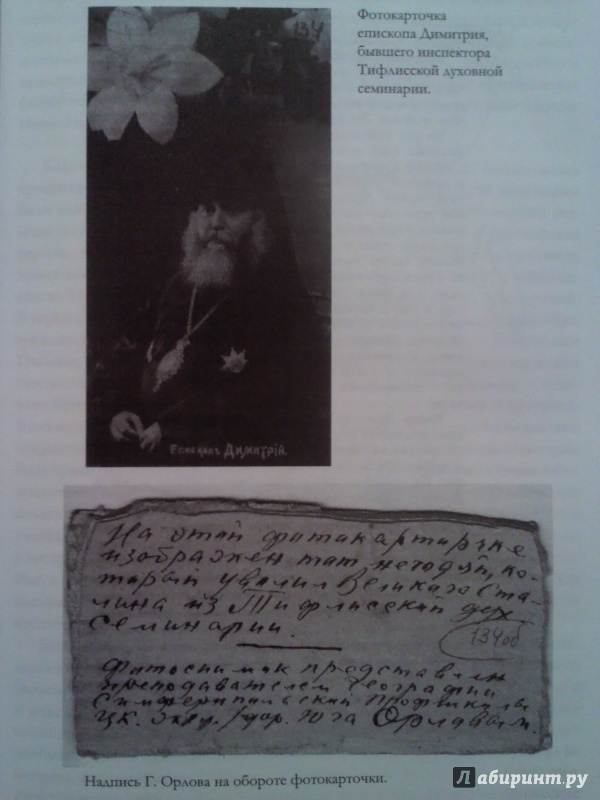 Фотокарточка
епископа Димитрия,
бывшего инспектора
Тифлисской духовной
семинарии.
134
Епископъ Димитрій.
На этой фотокарточке
изображен тот негодяй, ко-
торый уволил Великого Ста-
лина из Тифлисской дух
семинарии.
134об
Фотоснимок представлен
преподавателем географии
Симферопольской Профшколы
ЦК. Орловым.
Надпись Г. Орлова на обороте фотокарточки.
Лабиринт.ру